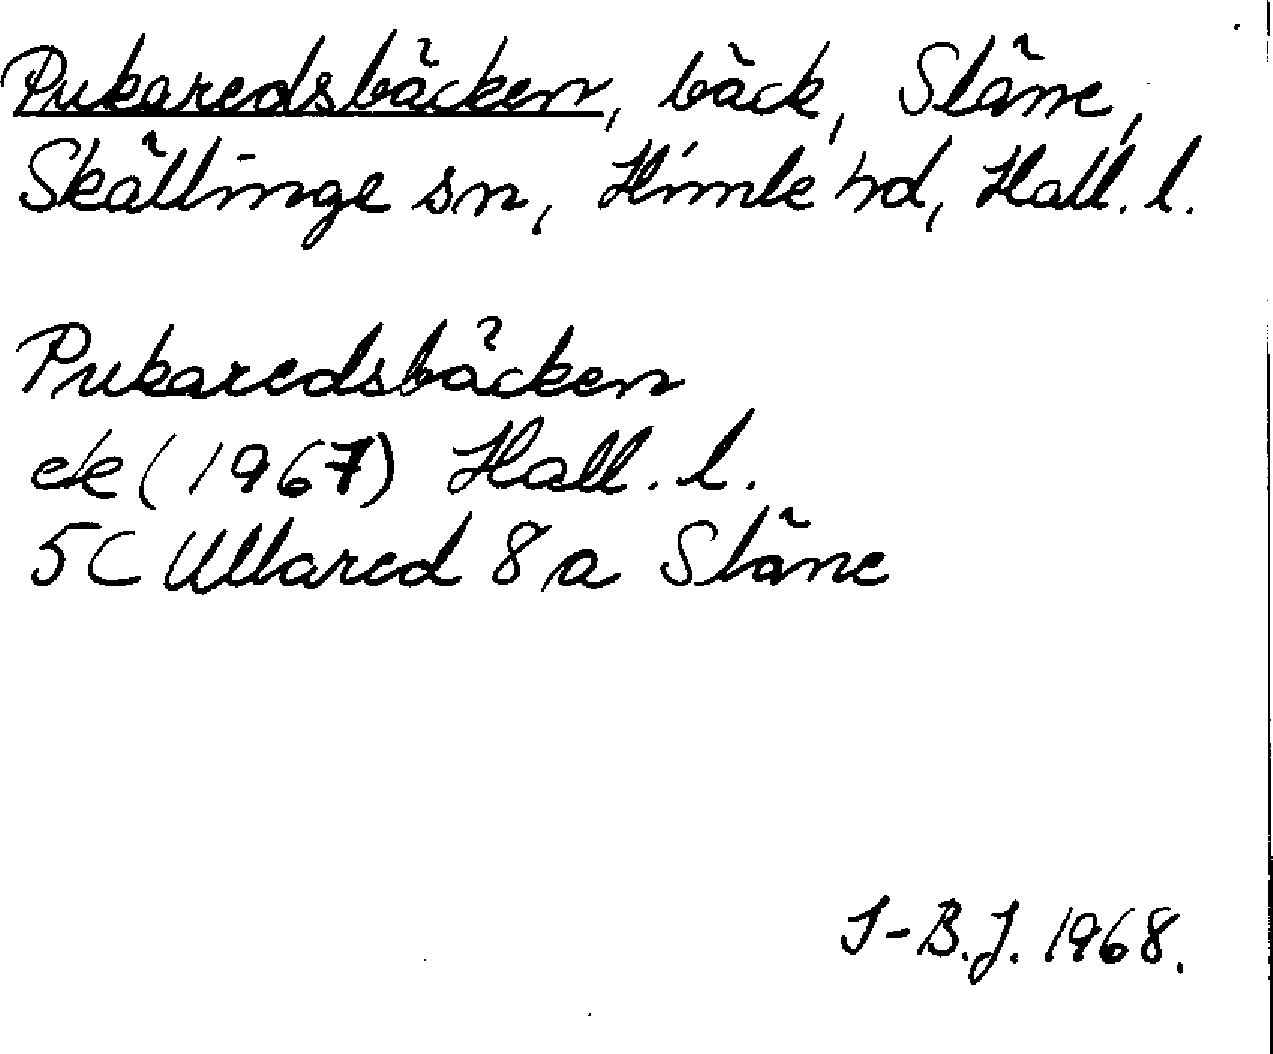 Pukaredsbäcken, bäck, Släne,
Skällinge sn, Himle hd, Hall. l.
Pukaredsbäcken
ek (1967) Hall. l.
5C Ullared 8a Släne
I-B.J. 1968.